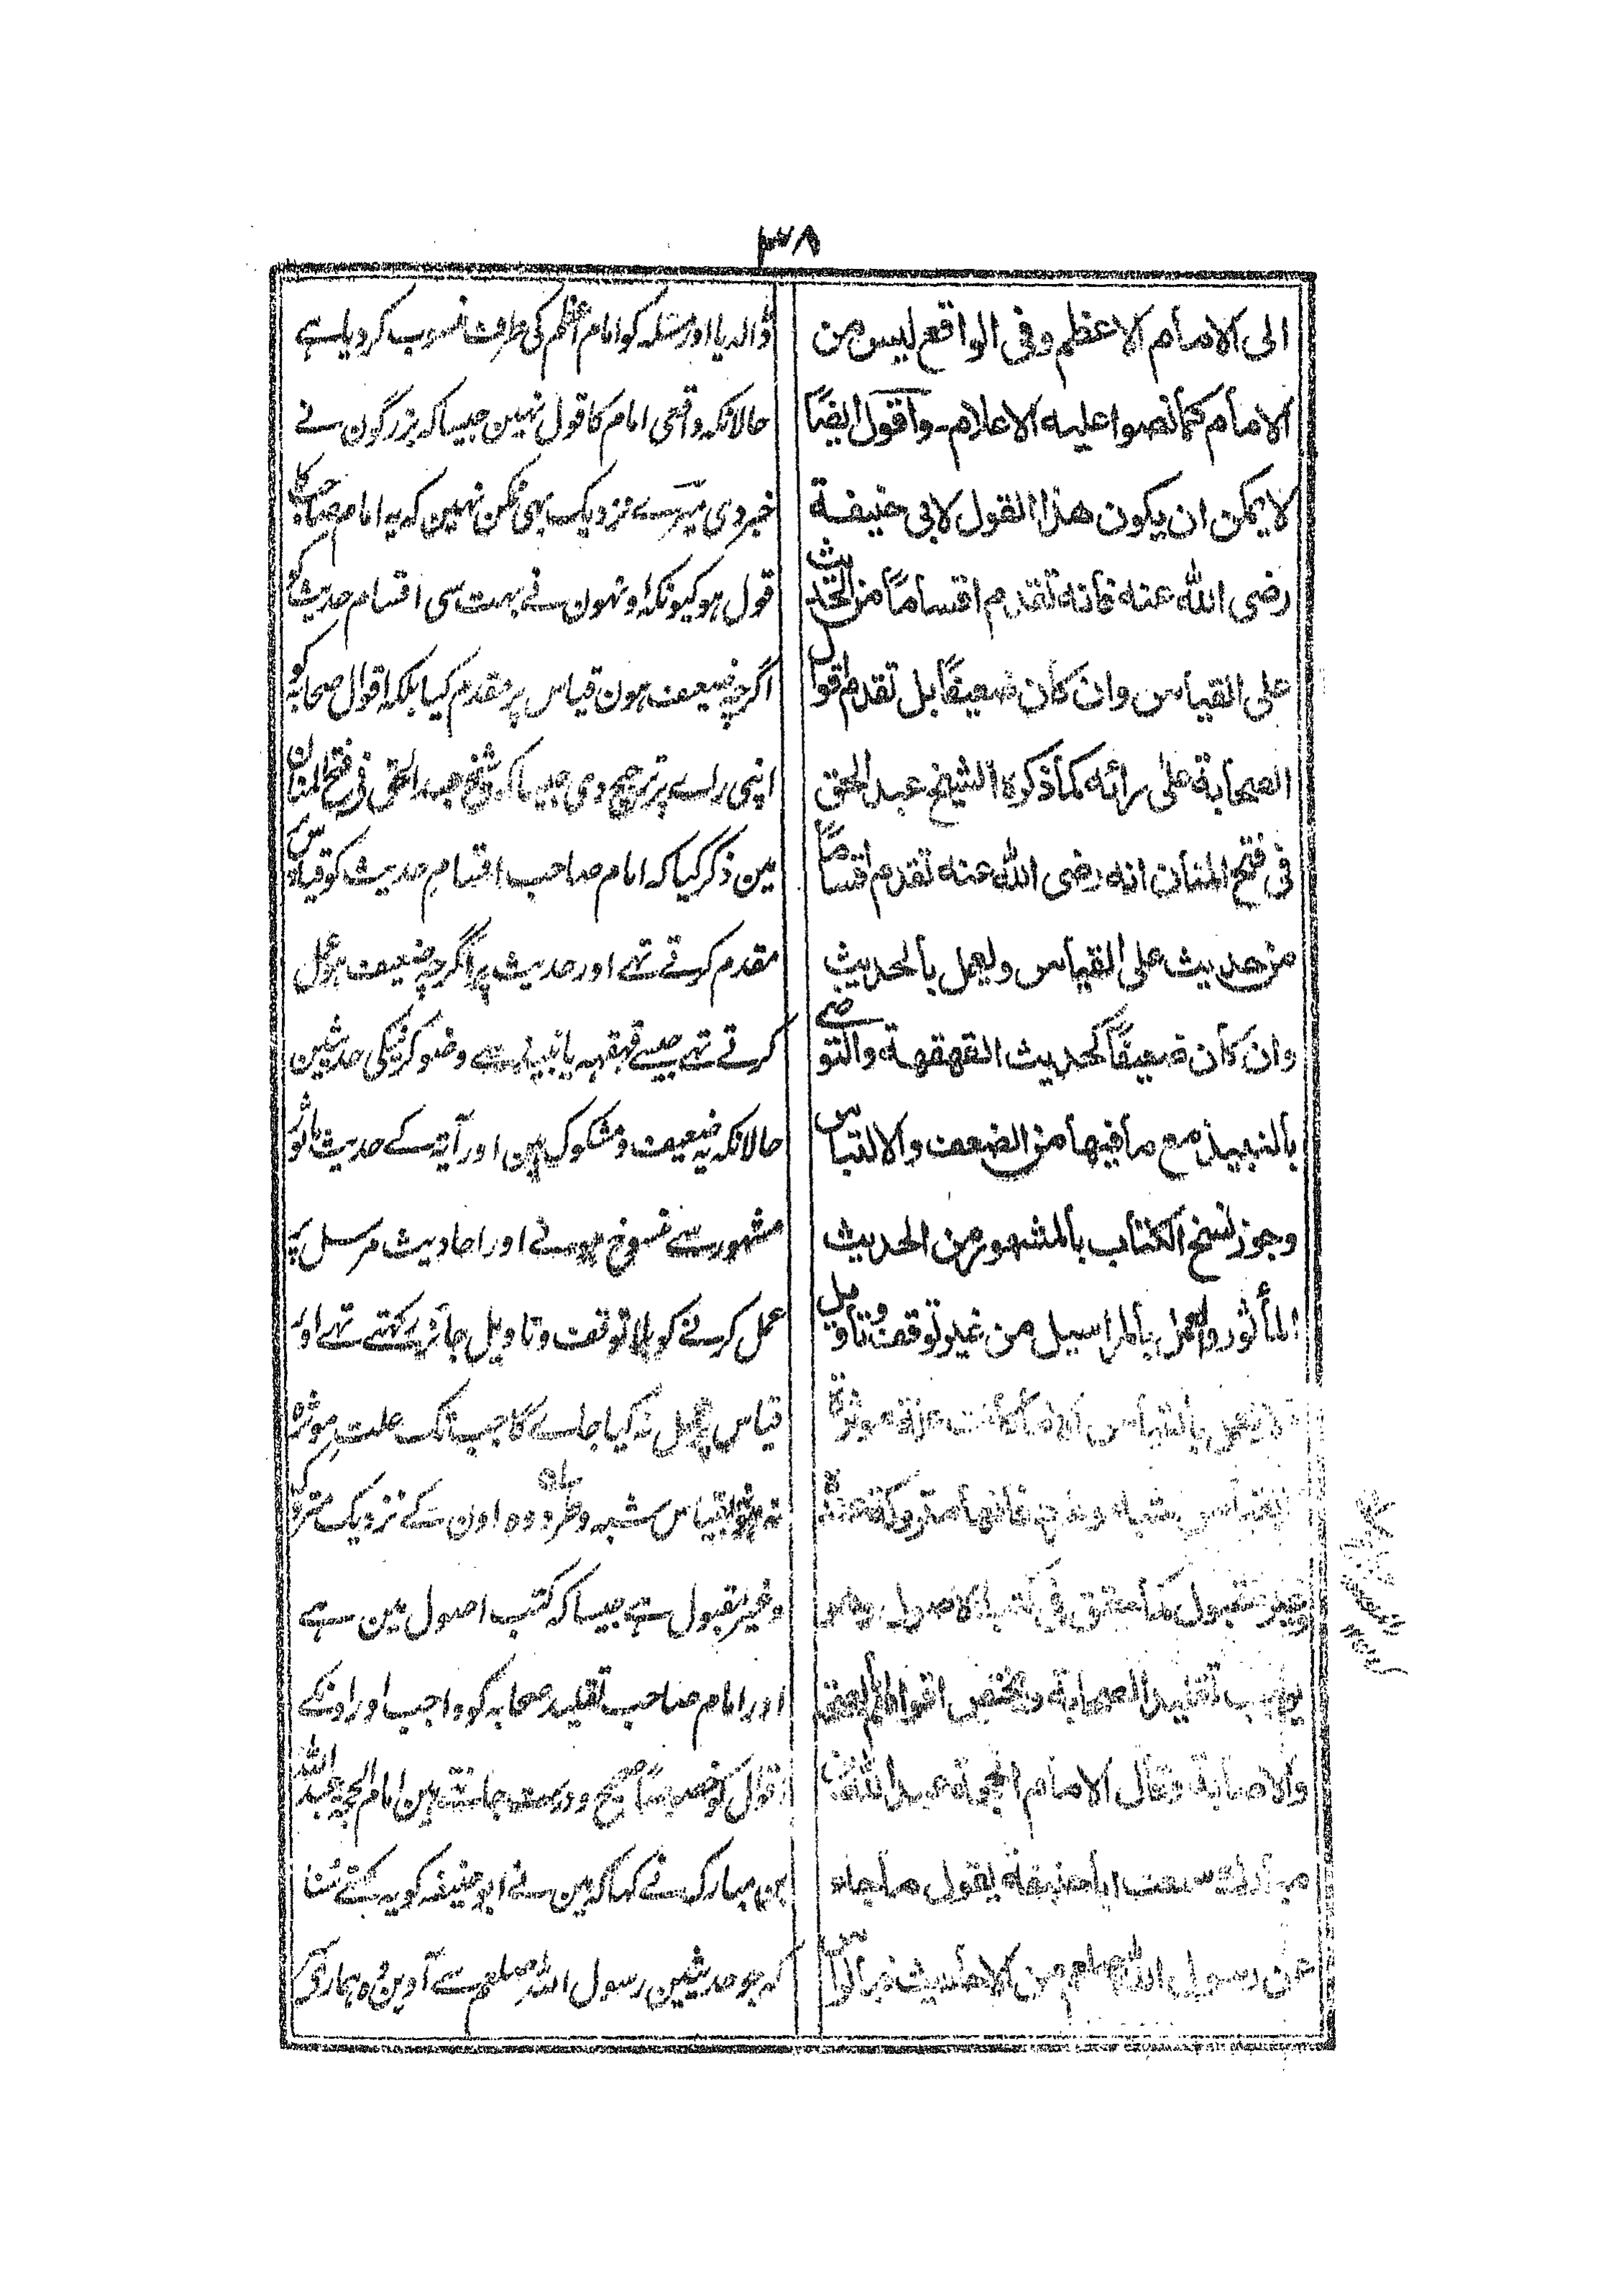 ۳۸
الى الامام الاعظم وفى الواقع ليس من
الامام كما نصوا عليه الاعلام۔ واقول ايضًا
لا يمكن ان يكون هذا القول لابى حنيفة
رضى الله عنه فانه تقدم اقسامًا من الحديث
على القياس وان كان ضعيفًا بل تقدم اقوال
الصحابة على رائه كما ذكره الشيخ عبد الحق
فى فتح المنان انه رضى الله عنه تقدم اقسامًا
من حديث على القياس وليعمل بالحديث
وان كان ضعيفًا كحديث القهقهة والتوضى
بالنبيذ مع ما فيها من الضعف والالتباس
وجوز نسخ الكتاب بالمشهور من الحديث
المأثور والعمل بالمراسيل من غير توقف وتأويل
بالقياس مؤثرة
شبه فانها متروكة
وغير مقبول كما الاصول
تقليد الصحابة ويختص اقوالهم
والاصابة وقال الامام الحجة عبد الله بن
مبارك سمعت ابا حنيفة يقول ما جاء
عن رسول الله صلعم من الاحاديث
ڈالدیا اور مسئلہ کو امام اعظم کی طرف منسوب کر دیا ہے
حالانکہ واقعی امام کا قول نہین جیسا کہ بزرگون نے
خبر دی میرے نزدیک بھی ممکن نہین کہ یہ امام صاحب کا
قول ہو کیونکہ اونہون نے بہت سی اقسام حدیث کو
اگرچہ ضعیف ہون قیاس پر مقدم کیا بلکہ اقوال صحابہ کو
اپنی راے پر ترجیح دی جیسا کہ شیخ عبد الحق فی فتح المنان
مین ذکر کیا کہ امام صاحب اقسام حدیث کو قیاس پر
مقدم کرتے تہے اور حدیث پر اگرچہ ضعیف ہو عمل
کرتے تہے جیسے قہقہہ یا نبیذ سے وضو کرنیکی حدیثین
حالانکہ یہ ضعیف و مشکوک ہین اور آیۃ کے حدیث ماثور
مشہور سے منسوخ ہونے اور احادیث مرسل پر
عمل کرنے کو بلا توقف و تاویل جائز رکہتے تہے اور
قیاس پر عمل نہ کیا جاے گا جب تک علت موثرہ
نہ ہو قیاس شبہ و طرد وہ اون کے نزدیک متروک
وغیر مقبول ہے جیسا کہ کتب اصول مین ہے
اور امام صاحب تقلید صحابہ کو واجب اور اونکے
اقوال کو خصوصًا صحیح و درست جانتے ہین امام الحجۃ عبد اللہ
بن مبارک نے کہا کہ مین نے ابو حنیفہ کو یہ کہتے سنا
کہ جو حدیثین رسول اللہ صلعم سے آوین وہ ہمارے